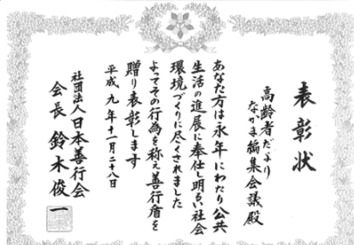 表彰状
高齢者だより
なかま編集会議殿
あなた方は永年にわたり公共
生活の進展に奉仕し明るい社会
環境づくりに尽くされました
よってその行為を称え善行盾を
贈り表彰します
平成九年十一月二十八日
社団法人日本善行会
会長 鈴木俊一